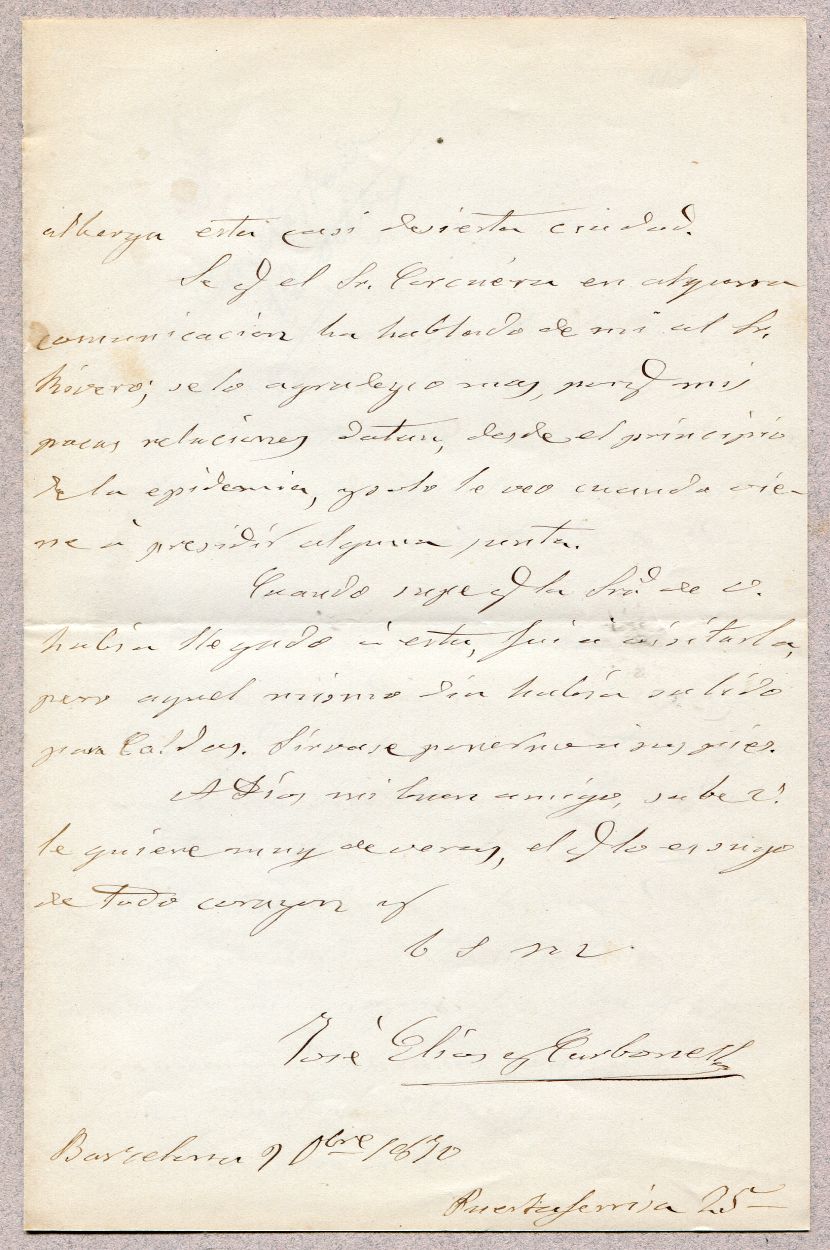 alberga esta casi desierta ciudad.
Se q el Sr. Corcuera en alguna
comunicacion ha hablado de mi al Sr.
Rivero; se lo agradezco mas, porq mis
pocas relaciones datan, desde el principio
de la epidemia, y solo le veo cuando vie-
ne á presidir alguna junta.
Cuando supe q la Sra de V.
habia llegado á esta, fui á visitarla,
pero aquel mismo dia habia salido
para Caldas. Sirvase ponerme á sus piés.
A Dios mi buen amigo, sabe V.
le quiere muy de veras, el q lo es suyo
de todo corazon y
b s m
José Elías y Carbonell
Barcelona 9 bre 1870
Puertaferrisa 25